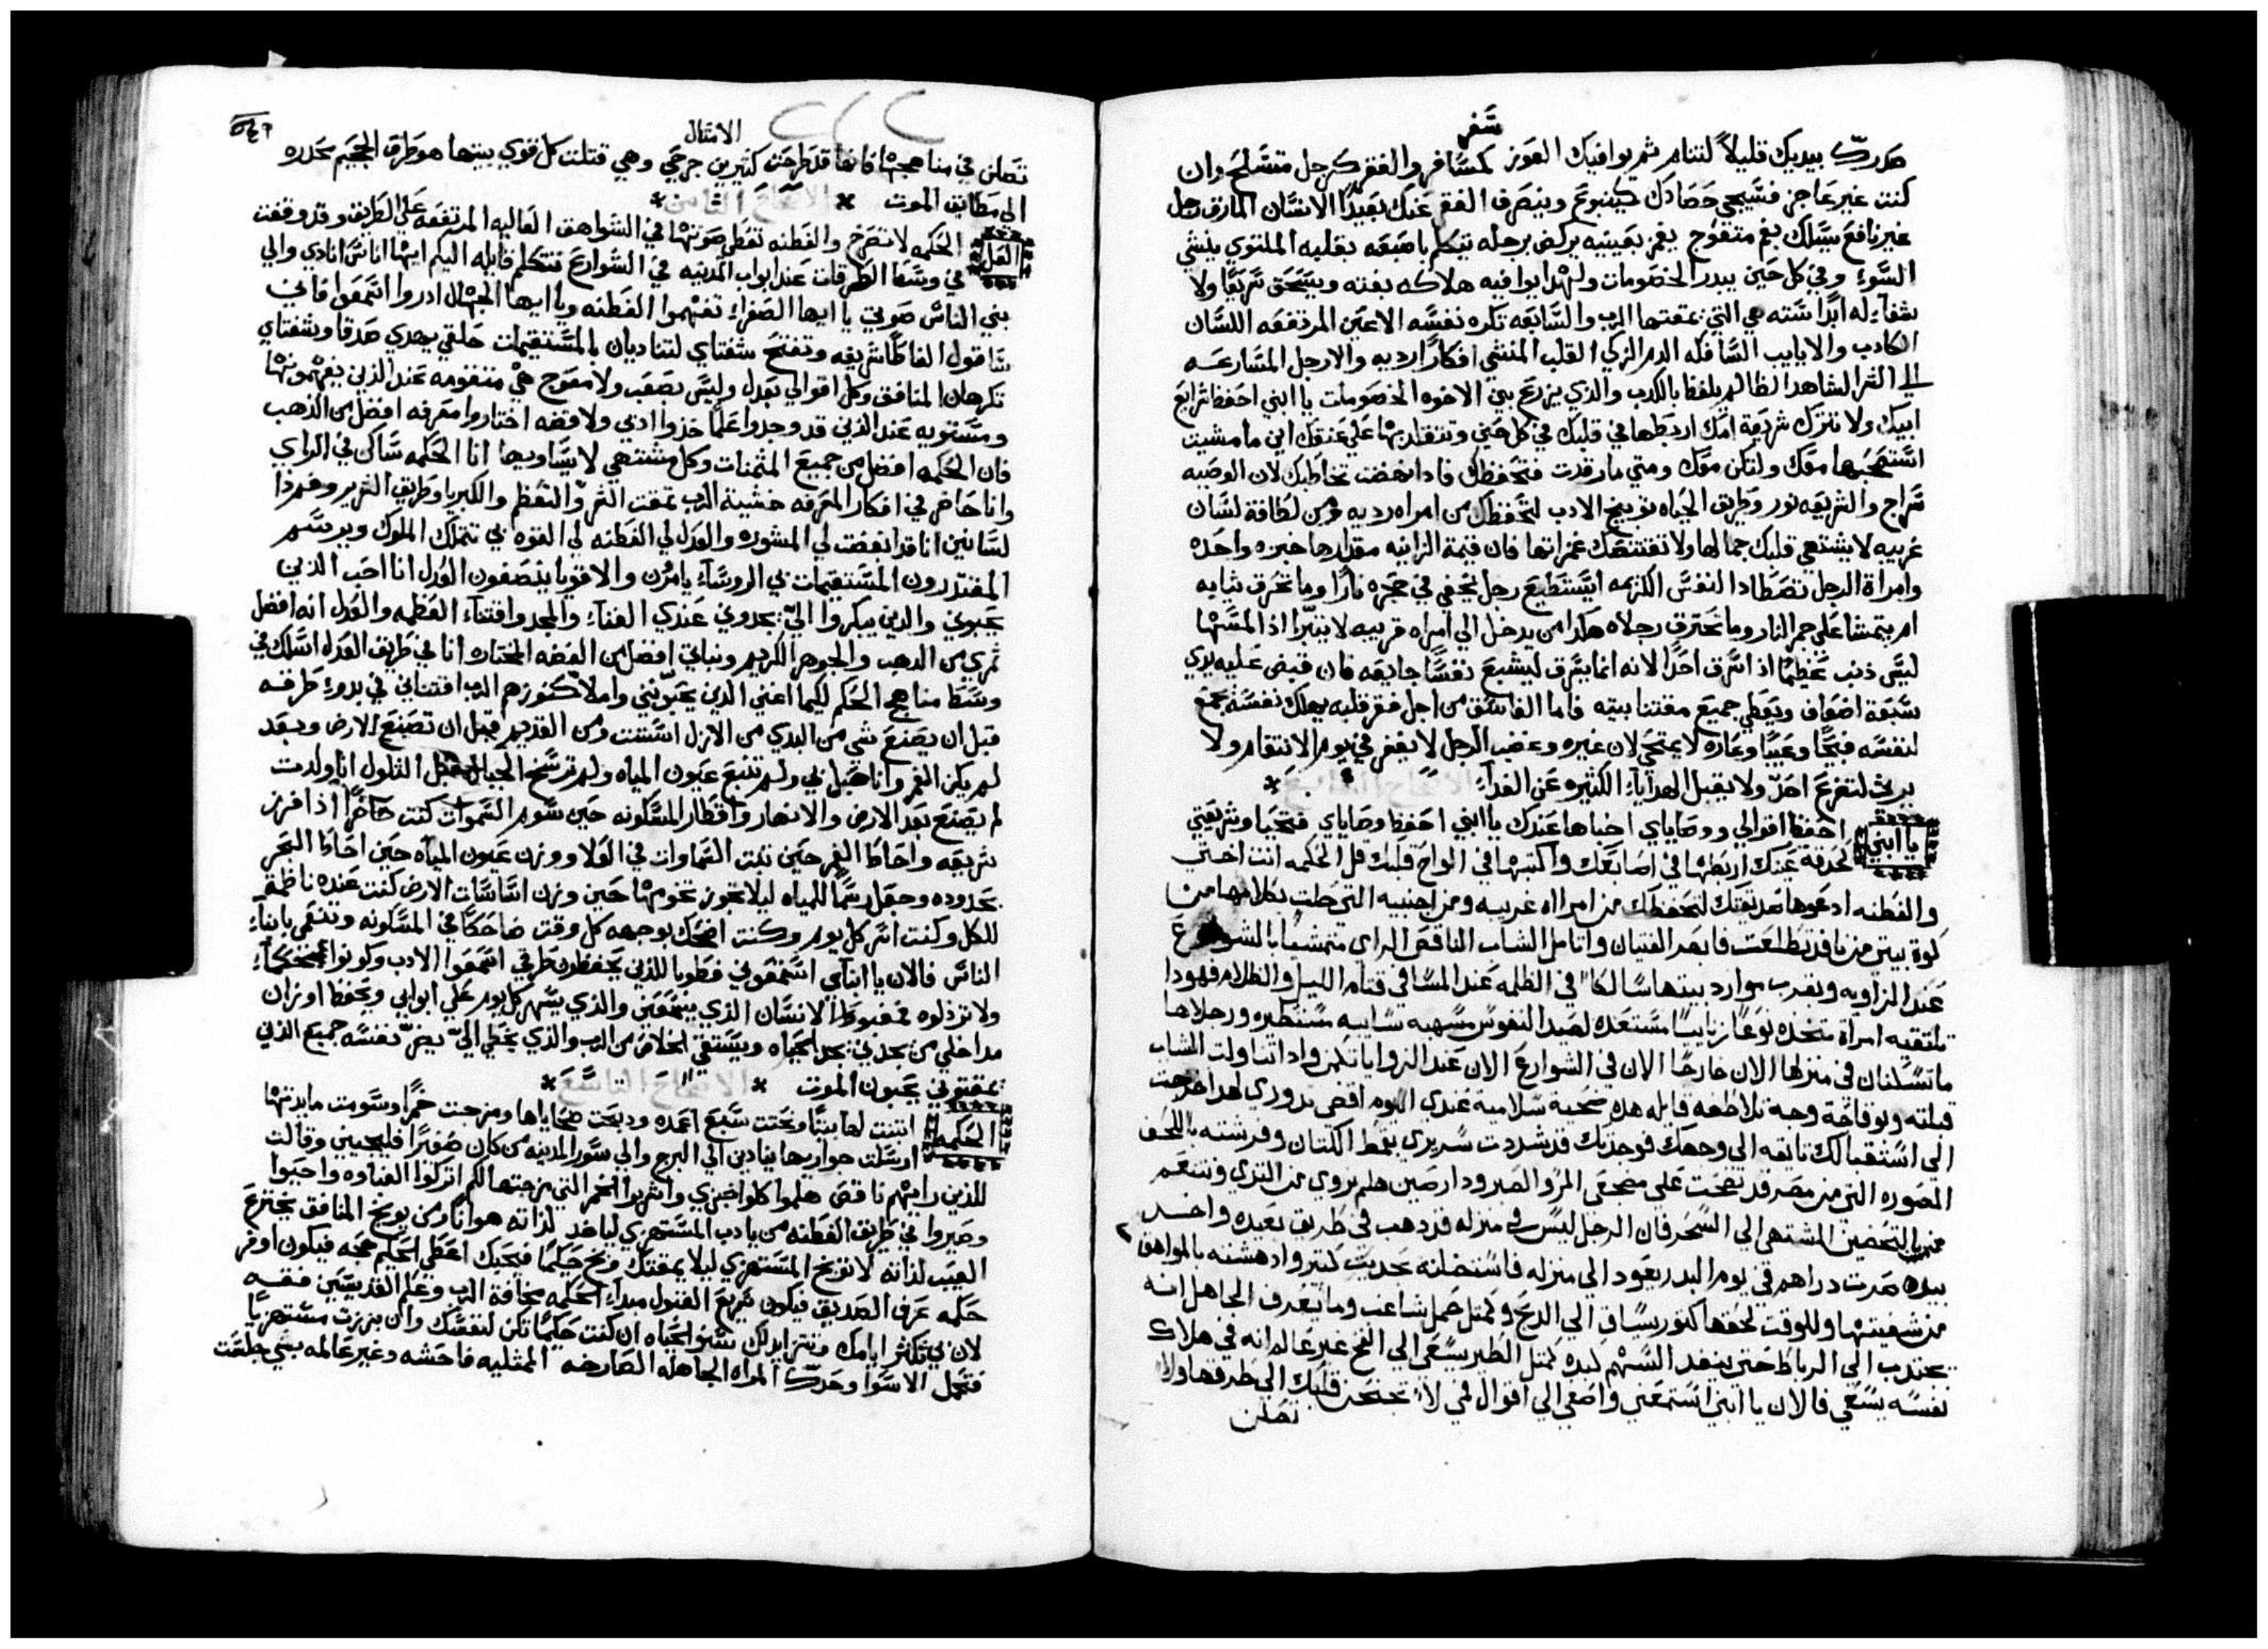 سفر
صدرك بيديك قليلاً لتنام ثم يوافيك العوز كمسافر والفقر كرجل متسلح وان
كنت غير عاجز فسيجي حصادك كينبوع وينصرف الفقر عنك بعيدًا الانسان المارق رجل
غير نافع يسلك بفم متعوج يغمز بعينيه يركض برجله يتكلم باصبعه بقلبه الملتوي ينشي
السوء وفي كل حين يبدر الخصومات ولهذا يوافيه هلاكه بغته وينسحق سريعًا ولا
شفآء له ابدًا سته هي التي يمقتها الرب والسابعه تكره نفسه الاعين المرتفعه اللسان
الكادب والايايب السافكه الدم الزكي القلب المنشي افكارًا رديه والارجل المسارعه
الي الشر الشاهد الظالم يلفظ بالكدب والذي يزرع بين الاخوه الخصومات يا ابني احفظ شرايع
ابيك ولا تترك شريعة امك اربطها في قلبك في كل حين وتتقلد بها علي عنقك اين ما مشيت
استصحبها معك ولتكن معك ومتي ما رقدت فتحفظك فادا نهضت تخاطبك لان الوصيه
سراج والشريعه نور وطريق الحياه توبيخ الادب لتحفظك من امراه رديه ومن لطافة لسان
غريبه لا يشتهي قلبك جمالها ولا تقتنصك غمزاتها فان قيمة الزانيه مقدارها خبزه واحده
وامراة الرجل تصطاد النفس الكريمه ايستطيع رجل يخفي في حجره نارًا وما تحرق ثيابه
ام يتمشا علي جمر النار وما تحترق رجلاه هكدا من يدخل الي امراه قريبه لا يتبرا اذا لمسها
ليس ذنب عظيمًا اذ اسرق احدًا لانه انما يسرق ليشبع نفسًا جايعه فان قبض عليه يودي
سبعة اضعاف ويعطي جميع مقتنا بيته فاما الفاسق من اجل فقر قلبه يهلك نفسه يجمع
لنفسه قبحًا وعيبًا وعاره لا يمتحي لان غيره وغضب الرجل لا يغفر في يوم الانتقام ولا
يرث لتضرع احدٍ ولا يقبل الهدايآء الكثيره عن الفدآء
الاصحاح السابع
يا ابني احفظ اقوالي ووصاياي اخباها عندك يا ابني احفظ وصاياي فتحيا وشريعتي
كحدقة عينك اربطها في اصابعك واكتبها في الواح قلبك قل الحكمه انت اختي
والفطنه ادعوها صديقتك لتحفظك من امراه غريبه ومن اجنبيه التي حلت بكلامها من
كوة بيتي من نافدتي طلعت فابصر الفتيان واتامل الشاب الناقص الراي متمشيًا بالشوارع
عند الزاويه وبقرب موارد بيتها سالكًا في الظلمه عند المسا في قتام الليل والظلام فهودا
تلتقيه امراة متخده نوعًا زانيًا مستعده لصيد النفوس مسهبه سايبه مستطيره ورجلاها
ما تسكنان في منزلها الان خارجًا الان في الشوارع الان عند الزوايا تكمن وادا تناولت الشاب
قبلته وبوقاحة وجه تلاطفه قايله هده ضحية سلامية عندي اليوم اقضي ندوري لهدا خرجت
الي استقبالك تايقه الي وجهك فوجدتك قد شددت سريري بقمط الكتان وفرشته باللحف
المصوره التي من مصر قد نضحت علي مضجعي المر والصبر ودارصين هلم نروي من التدي ونتنعم
بالتحضين المشتهي الي السحر فان الرجل ليس في منزله قد دهب في طريق بعيده واخد
بيده صرت دراهم في يوم البدر يعود الي منزله فاستضلته بحديث كتير وادهشته بالمواهق
من شفتيها وللوقت لحقها كتور يساق الي الدبح وكمتل حمل شاغب وما يعرف الجاهل انه
يجدب الي الرباط حتي ينفد السهم كبده كمتل الطير يسعي الي الفخ غير عالم انه في هلاك
نفسه يسعي فالان يا ابني استمعني واصغي الي اقوال فمي لا تجنحن قلبك الي طرقها ولا
تضلن
٥٤٦
الامثال
تضلن في مناهجها فانها قد طرحت كثيرين جرحي وهي قتلت كل قوي بيتها هو طرق الجحيم تحدره
الي مطابق الموت * الاصحاح الثامن *
العل الحكمه لا تصرخ والفطنه تعطي صوتها في الشواهق العاليه المرتفعه علي الطريق وقد وقفت
في وسط الطرقات عند ابواب المدينه في الشوارع تتكلم قايله اليكم ايها الناس انادي والي
بني الناس صوتي يا ايها الصغراء تفهموا الفطنه ويا ايها الجهال ادروا اسمعوا فاني
ساقول الفاظًا شريفه وتفتح شفتاي لتناديان بالمستقيمات حلقي يهدي صدقا وشفتاي
تكرهان المنافق وكل اقوالي بعدل وليس بصعب ولا معوج هي متقومه عند الذين يفهمونها
ومستويه عند الذين قد وجدوا علمًا خذوا ادبي ولا فضه اختاروا معرفه افضل من الذهب
فان الحكمه افضل من جميع المثمنات وكل مشتهي لا يساويها انا الحكمه ساكن في الراي
وانا حاضر في افكار المعرفه خشية الرب تمقت الشر والتعظم والكبريا وطريق الشرير وفم ذا
لسانين انا قد ابغضت لي المشوره والعدل لي الفطنه لي القوه بي تتملك الملوك ويرسم
المقتدرون المستقيمات بي الروسآء يامرون والاقويا ينصفون العدل انا احب الذين
يحبوني والذين يبكروا اليّ يجدوني عندي الغنآء والمجد واقتناء العظمه والعدل انه افضل
ثمري من الدهب والجوهر الكريم ونباتي افضل من الفضه المختاره انا في طريق العدل اسلك في
وسط مناهج الحكم لكيما اغني الدين يحبونني واملا كنوزهم الرب اقتناني في بدوء طرقه
قبل ان يصنع شي من البدي من الازل اسست ومن القديم قبل ان تصنع الارض وبعد
لم يكن الغمر وانا حبل بي ولم تنبع عيون المياه ولم ترسخ الجبال قبل التلول انا ولدت
لم يصنع بعد الارض والانهار واقطار المسكونه حين سوم السموات كنت حاضرًا اذا فرز
شريعه واحاط الغمر حين ثبت السماوات في العلا ووزن عيون المياه حين احاط البحر
بحدوده وجعل رسمًا للمياه ليلا تجوز تخومها حين وزن اساسات الارض كنت عنده ناظمة
للكل وكنت اسر كل يوم وكنت اضحك بوجهه كل وقت ضاحكًا في المسكونه وتنعمي بابناء
الناس فالان يا ابناي اسمعوني فطوبا للذين يحفظون طرقي اسمعوا الادب وكونوا حكمآء
ولا ترذلوه فمغبوط الانسان الذي يسمعني والذي يسهر كل يوم علي ابوابي ويحفظ اوزان
مداخلي من يجدني يجد الحياه ويستقي الخلاص من الرب والذي يخطي اليّ يضرّ نفسه جميع الذين
يمقتوني يحبون الموت * الاصحاح التاسع *
الحكمه ابتنت لها بيتًا ونحتت سبع اعمده ودبحت ضحاياها ومزجت خمرًا وسومت مايدتها
ارسلت جواريها ينادين الي البرج والي سور المدينه من كان صغيرًا فليجيني وقالت
للذين رايتهم ناقص هلموا كلوا خبزي واشربوا الخمر التي مزجتها لكم اتركوا الغباوه واحيوا
وصيروا في طريق الفطنه من يادب المستهزي لياخد لذاته هوانًا ومن يوبخ المنافق يخترع
العيب لذاته لا توبخ المستهزي ليلا يمقتك وبخ حكيمًا فيحبك اعطي الحكيم حجه فيكون اوفر
حكمه عرف الصديق فيكون سريع القبول مبدآء الحكمه مخافة الرب وعلم القديسين فقه
لان بي تكثر ايامك وتتزايد لك سنو الحياه ان كنت حكيمًا تكن لنفسك وان برزت مستهزيًا
فتحمل الاسوا وحدك المراه الجاهله الصارخه الممتليه فاحشه وغير عالمه بشي جلست